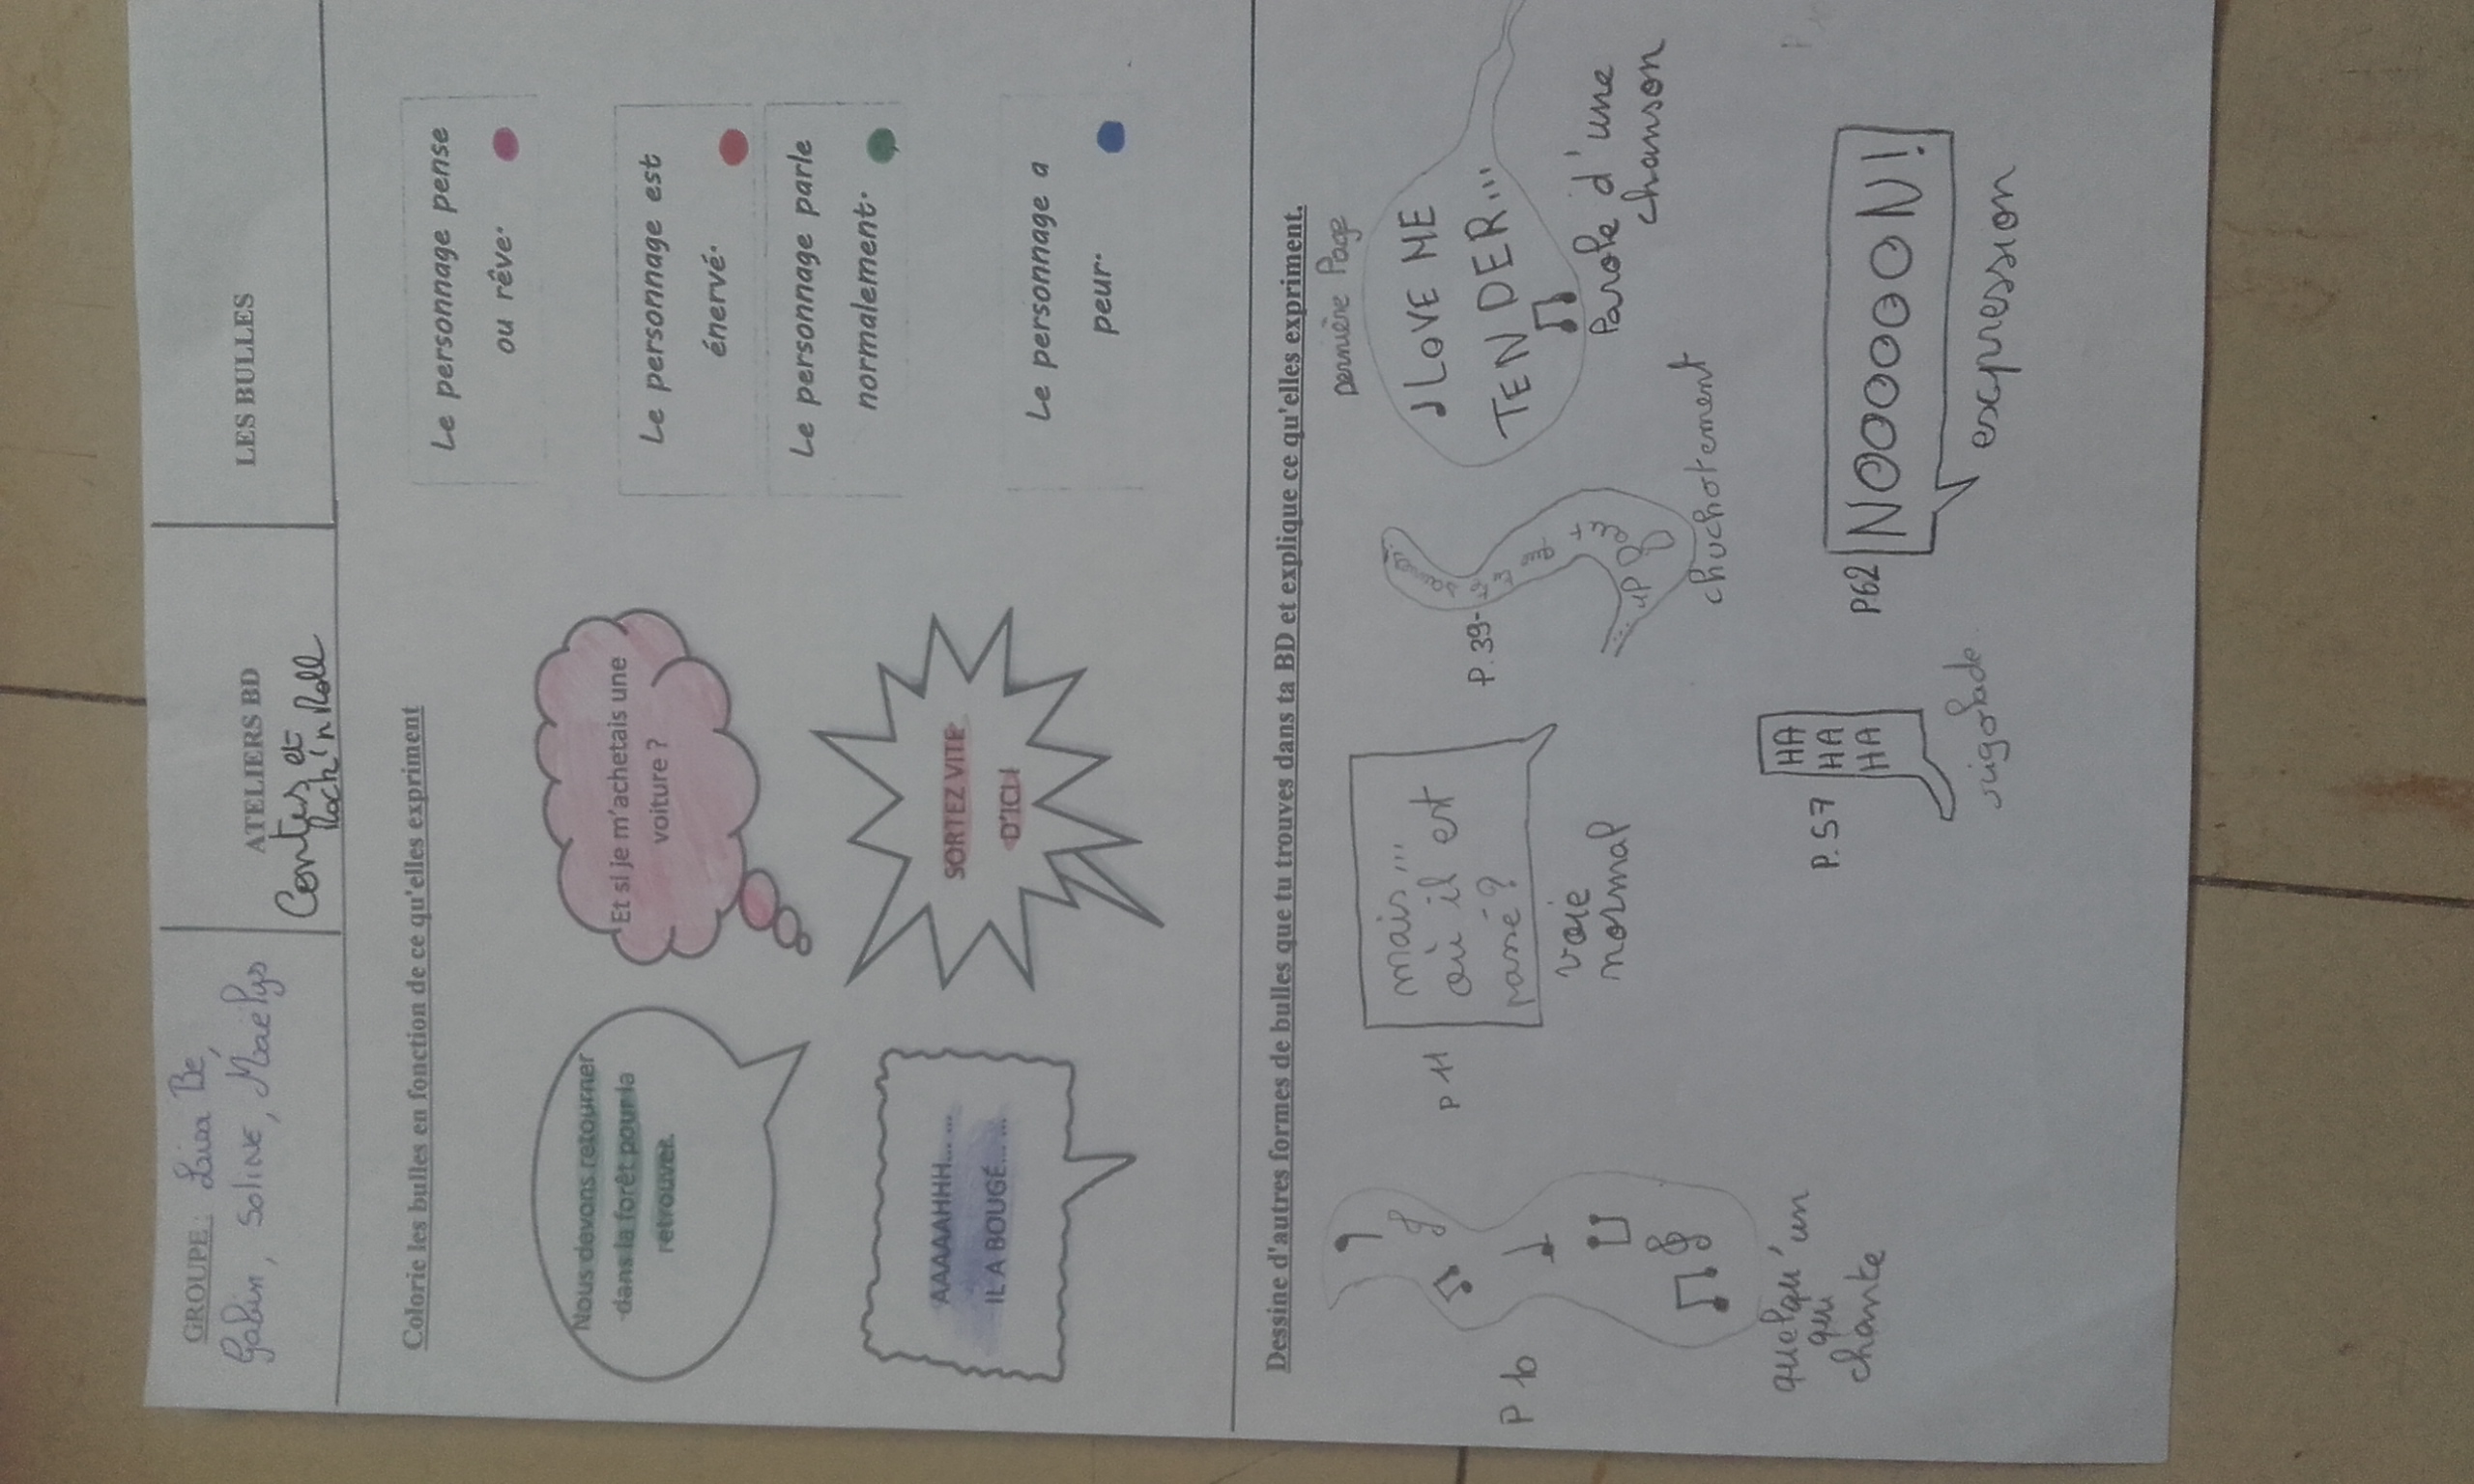 GROUPE: Liiza Be,
Gabin, SoliNE, Maëlys
ATELIERS BD
Contes et
Rock'in Roll
LES BULLES
Colorie les bulles en fonction de ce qu'elles expriment
Nous devons retourner
dans la forêt pour la
retrouver.
Et si je m'achetais une
voiture ?
AAAAAHHH... ...
IL A BOUGÉ... ...
SORTEZ VITE
D'ICI!
Le personnage pense
ou rêve.
Le personnage est
énervé.
Le personnage parle
normalement.
Le personnage a
peur.
Dessine d'autres formes de bulles que tu trouves dans ta BD et explique ce qu'elles expriment.
P 10
quelqu'un
qui
chante
P 11
mais...
où il est
passé?
voie
normal
P.39-
chuchotement
dernière Page
LOVE ME
TENDER...
Parole d'une
chanson
P.57
HA
HA
HA
rigolade
P62
NOOOOOON!
expression